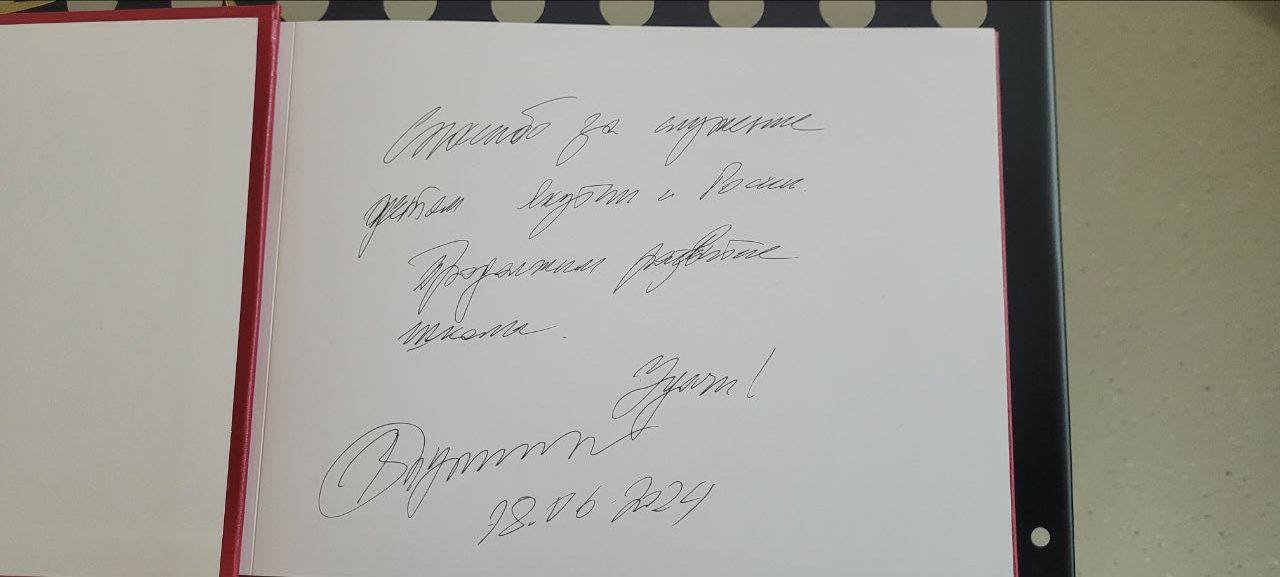 Спасибо за служение
детям Якутии и России.
Продолжим развитие
школы.
Удачи!
В. Путин
18.06.2024